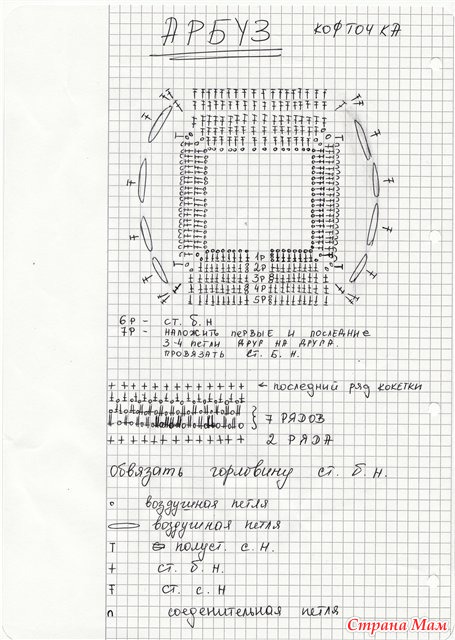 АРБУЗ
КОФТОЧКА
1Р
2Р
3Р
4Р
5Р
6Р - СТ. Б. Н
7Р - НАЛОЖИТЬ ПЕРВЫЕ И ПОСЛЕДНИЕ
3-4 ПЕТЛИ ДРУГ НА ДРУГА.
ПРОВЯЗАТЬ СТ. Б. Н.
← ПОСЛЕДНИЙ РЯД КОКЕТКИ
7 РЯДОВ
2 РЯДА
ОБВЯЗАТЬ ГОРЛОВИНУ СТ. Б. Н.
ВОЗДУШНАЯ ПЕТЛЯ
ВОЗДУШНАЯ ПЕТЛЯ
ПОЛУСТ. С. Н.
СТ. Б. Н.
СТ. С. Н
СОЕДЕНИТЕЛЬНАЯ ПЕТЛЯ
Страна Мам